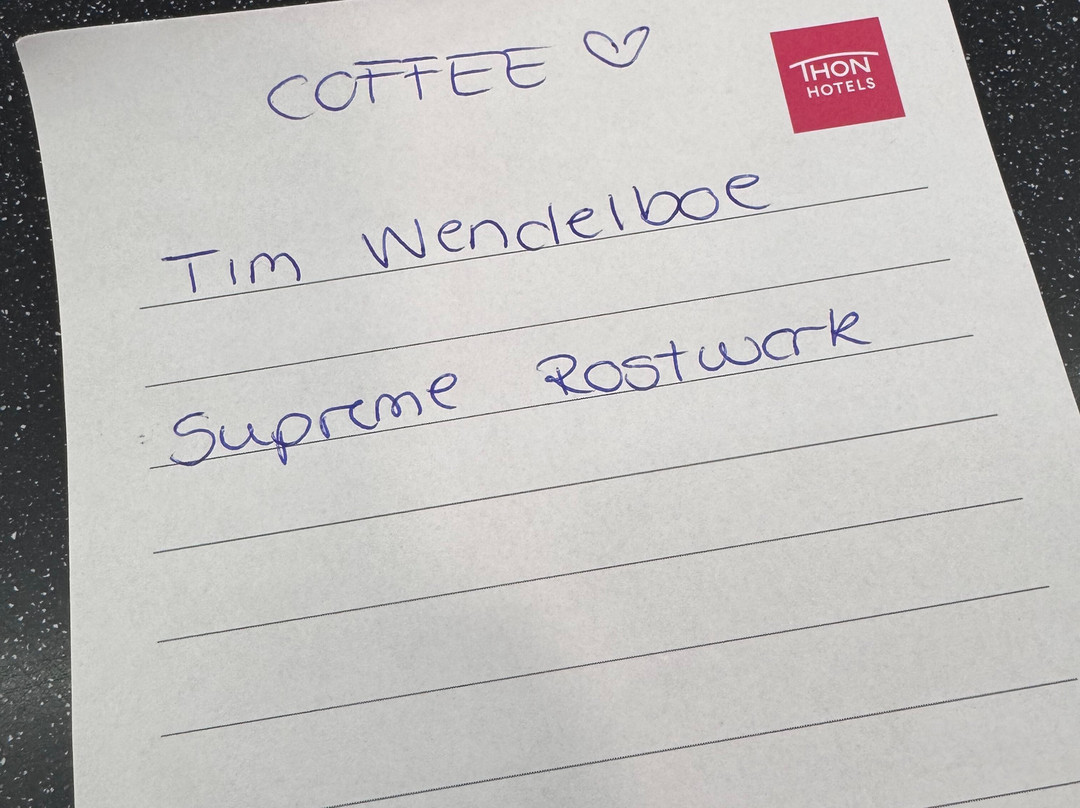 COFFEE ♡
THON
HOTELS
Tim Wendelboe
Supreme Rostwork